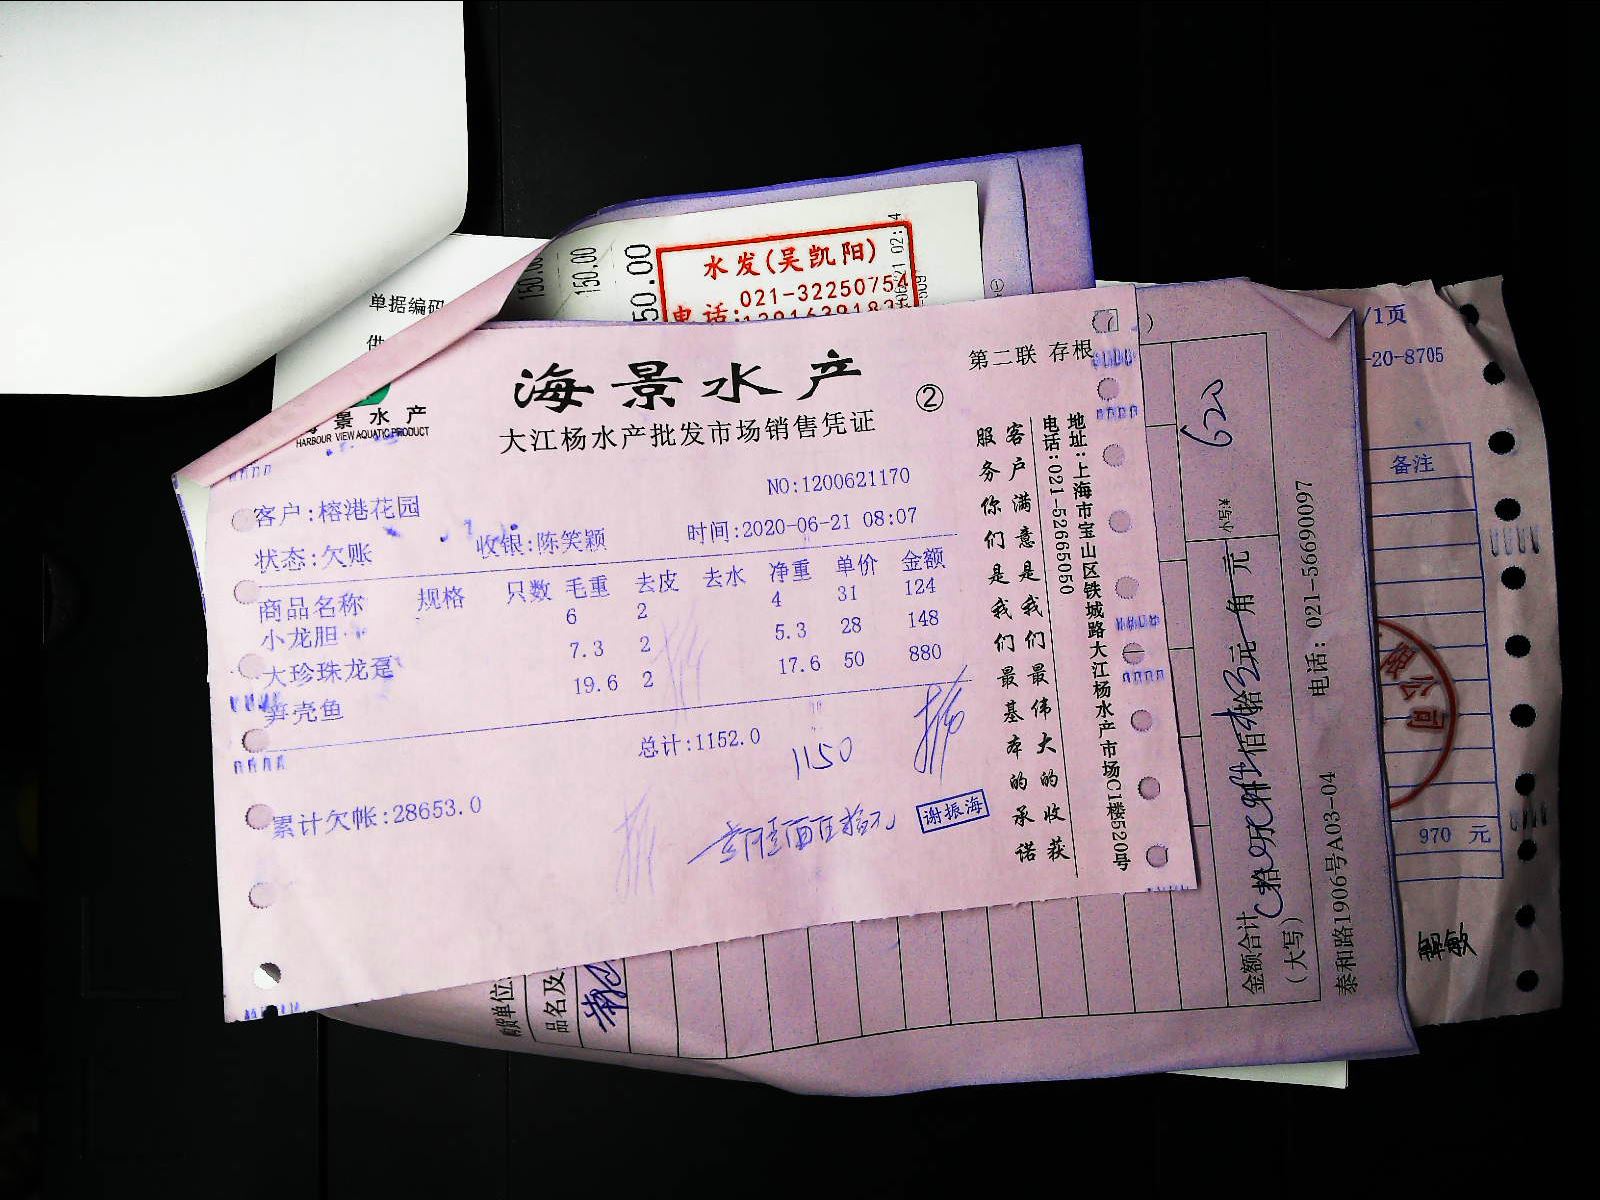 单据编码
150.00
150.00
50.00
水发(吴凯阳)
021-32250754
电话:
第二联 存根
海景水产
②
大江杨水产批发市场销售凭证
景水产
HARBOUR VIEW AQUATIC PRODUCT
NO:1200621170
客户:榕港花园
状态:欠账 收银:陈笑颖 时间:2020-06-21 08:07
商品名称 规格 只数 毛重 去皮 去水 净重 单价 金额
小龙胆 6 2 4 31 124
大珍珠龙趸 7.3 2 5.3 28 148
笋壳鱼 19.6 2 17.6 50 880
总计:1152.0
1150
累计欠帐:28653.0
谢振海
客户满意是我们最伟大的收获
服务你们是我们最基本的承诺
地址:上海市宝山区铁城路大江杨水产市场C1楼520号
电话:021-52665050
620
小写:¥
金额合计
(大写)
拾 佰 拾 元 角 元
泰和路1906号A03-04 电话: 021-56690097
品名及
/1页
-20-8705
备注
公司
970 元